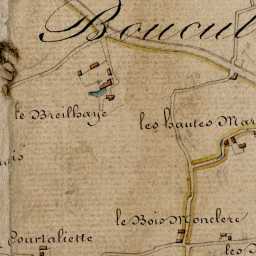 Boucul
le Breilhaye
les hautes Mar
ais
le Bois Monclerc
Courtaliette
les